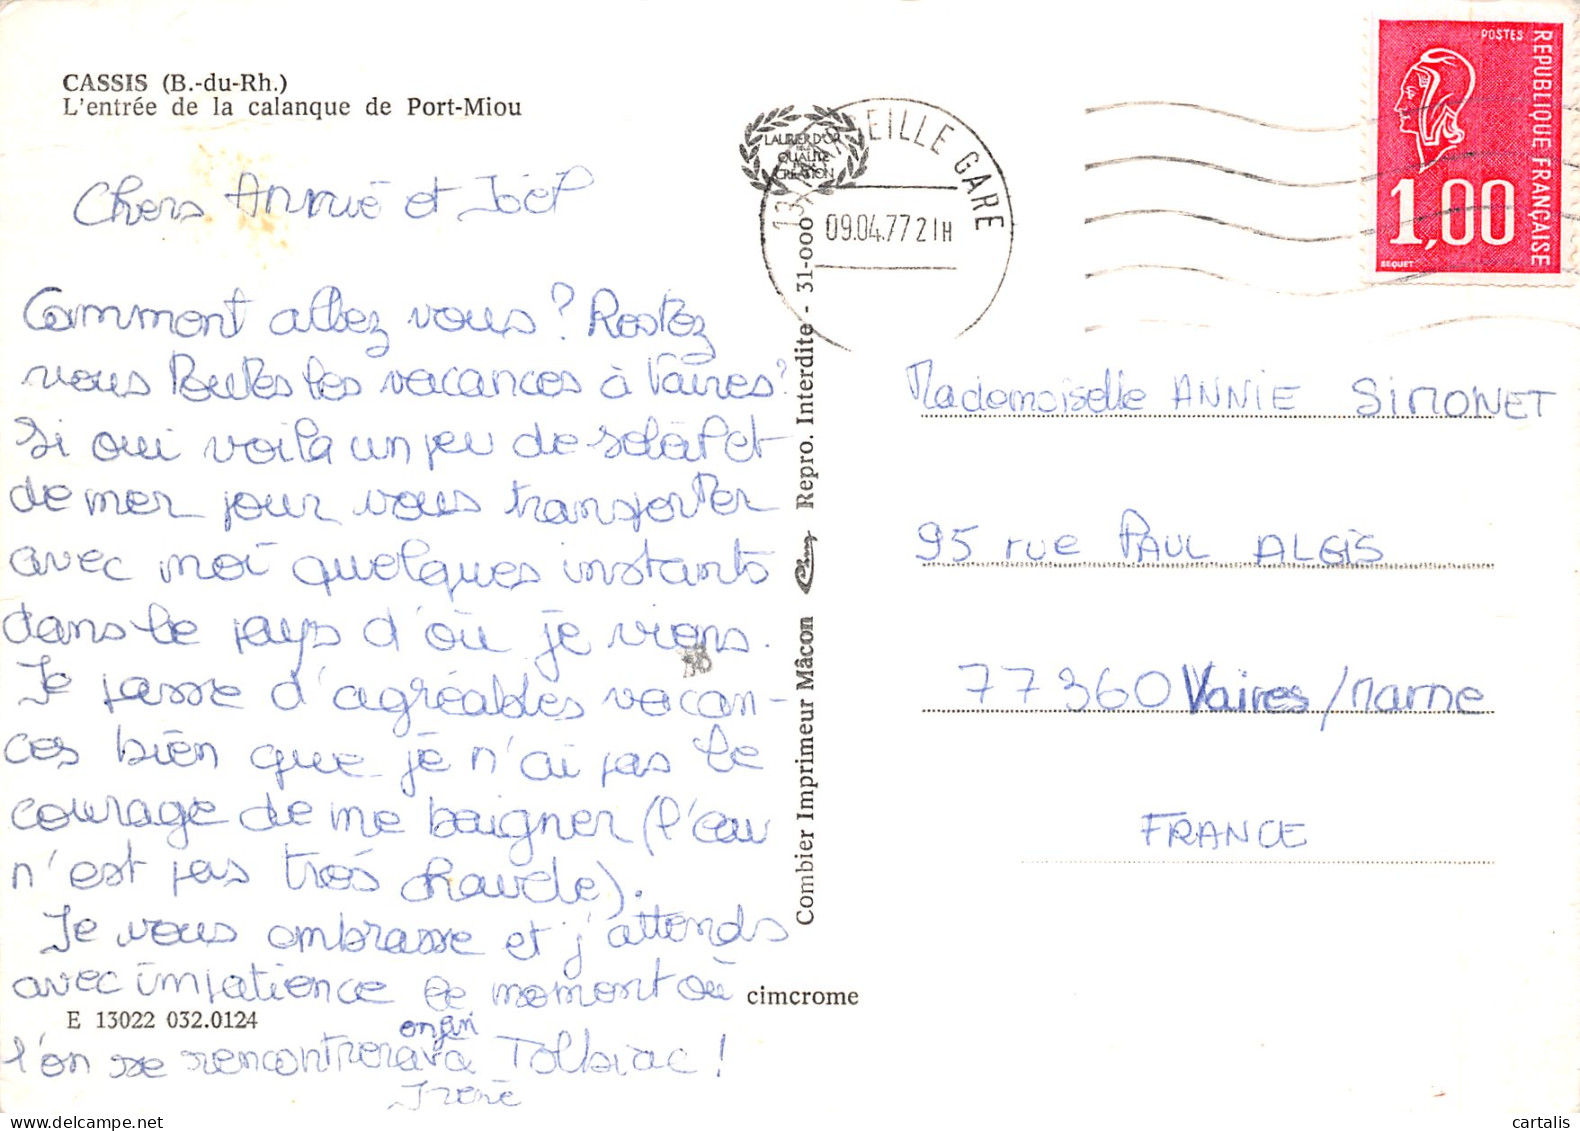 CASSIS (B.-du-Rh.)
L'entrée de la calanque de Port-Miou
Chers Annie et Joël
Comment allez vous? Restez
vous toutes les vacances à Vaires?
Si oui voila un peu de soleil et
de mer pour vous transporter
avec moi quelques instants
dans le pays d'où je viens.
Je passe d'agréables vacan-
ces bien que je n'ai pas le
courage de me baigner (l'eau
n'est pas très chaude).
Je vous embrasse et j'attends
avec impatience le moment où
l'on se rencontrera enfin à Tolbiac!
Irène
E 13022 032.0124
cimcrome
Combier Imprimeur Mâcon Cim Repro. Interdite - 31-000
LAURIER D'OR
DE LA
QUALITE
CREATION
13 MARSEILLE GARE
09.04.77 21H
POSTES
REPUBLIQUE FRANÇAISE
1,00
BEQUET
Mademoiselle ANNIE SIMONET
95 rue PAUL ALGIS
77360 Vaires/Marne
FRANCE
www.delcampe.net
cartalis